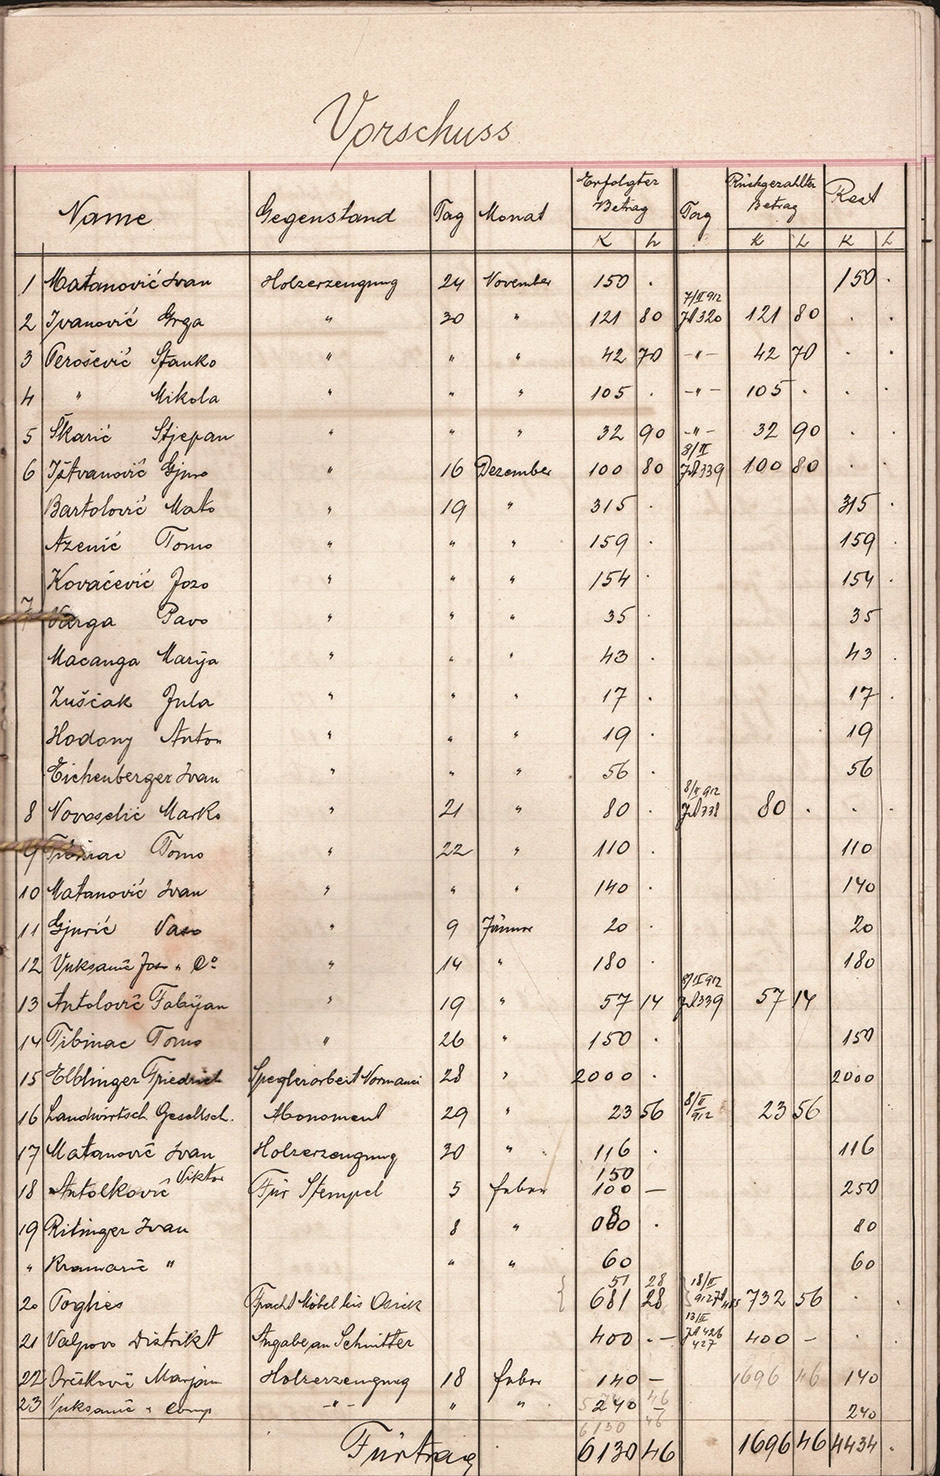 Vorschuss
Name Gegenstand Tag Monat Erfolgter Betrag Tag Rückgezahlter Betrag Rest
K h K h K h
1 Matanović Ivan Holzerzeugung 24 November 150 . 150 .
2 Ivanović Grga " 30 " 121 80 7/II 912 Jl 320 121 80 . .
3 Perošević Stanko " " " 42 70 -"- 42 70 . .
4 " Mikola " " " 105 . -"- 105 . . .
5 Škarić Stjepan " " " 32 90 -"- 32 90 . .
6 Ištvanović Gjuro " 16 Dezember 100 80 8/II Jl 339 100 80 . .
Bartolović Mato " 19 " 315 . 315 .
Azenić Tomo " " " 159 . 159 .
Kovačević Jozo " " " 154 . 154 .
7 Varga Pavo " " " 35 . 35
Macanga Marija " " " 43 . 43 .
Zuščak Jula " " " 17 . 17
Hodony Anton " " " 19 . 19
Eichenberger Ivan " " " 56 . 56
8 Novoselić Marko " 21 " 80 . 8/II 912 Jl 338 80 . . .
9 Tibinac Tomo " 22 " 110 . 110
10 Matanović Ivan " " " 140 . 140
11 Gjurić Vaso " 9 Jänner 20 . 20
12 Vuksanić Joso " Co " 14 " 180 . 180
13 Antolović Fabijan " 19 " 57 14 8/II 912 Jl 339 57 14
14 Tibinac Tomo " 26 " 150 . 150
15 Elblinger Friedrich Spenglerarbeit Normanci 28 " 2000 . 2000
16 Landwirtsch Gesellsch. Abonoment 29 " 23 56 8/II 912 23 56
17 Matanović Ivan Holzerzeugung 30 " 116 . 116
150
18 Antolković Viktor Für Stempel 5 feber 100 — 250
19 Ritinger Ivan 8 " 80 . 80
" Kramarić " " " 60 60
51 28 18/II
20 Poghies Fracht Möbel bis Osiek 681 28 912 Jl 732 56 . .
21 Valpovo Distrikt Angabe an Schnitter 400 .— 13/II Jl 426 427 400 — . .
22 Orešković Marjan Holzerzeugung 18 feber 140 — 1696 46 140
23 Vuksanić " Comp -"- " " 240 — 240
6130 46
Fürtrag 6130 46 1696 46 4434 .